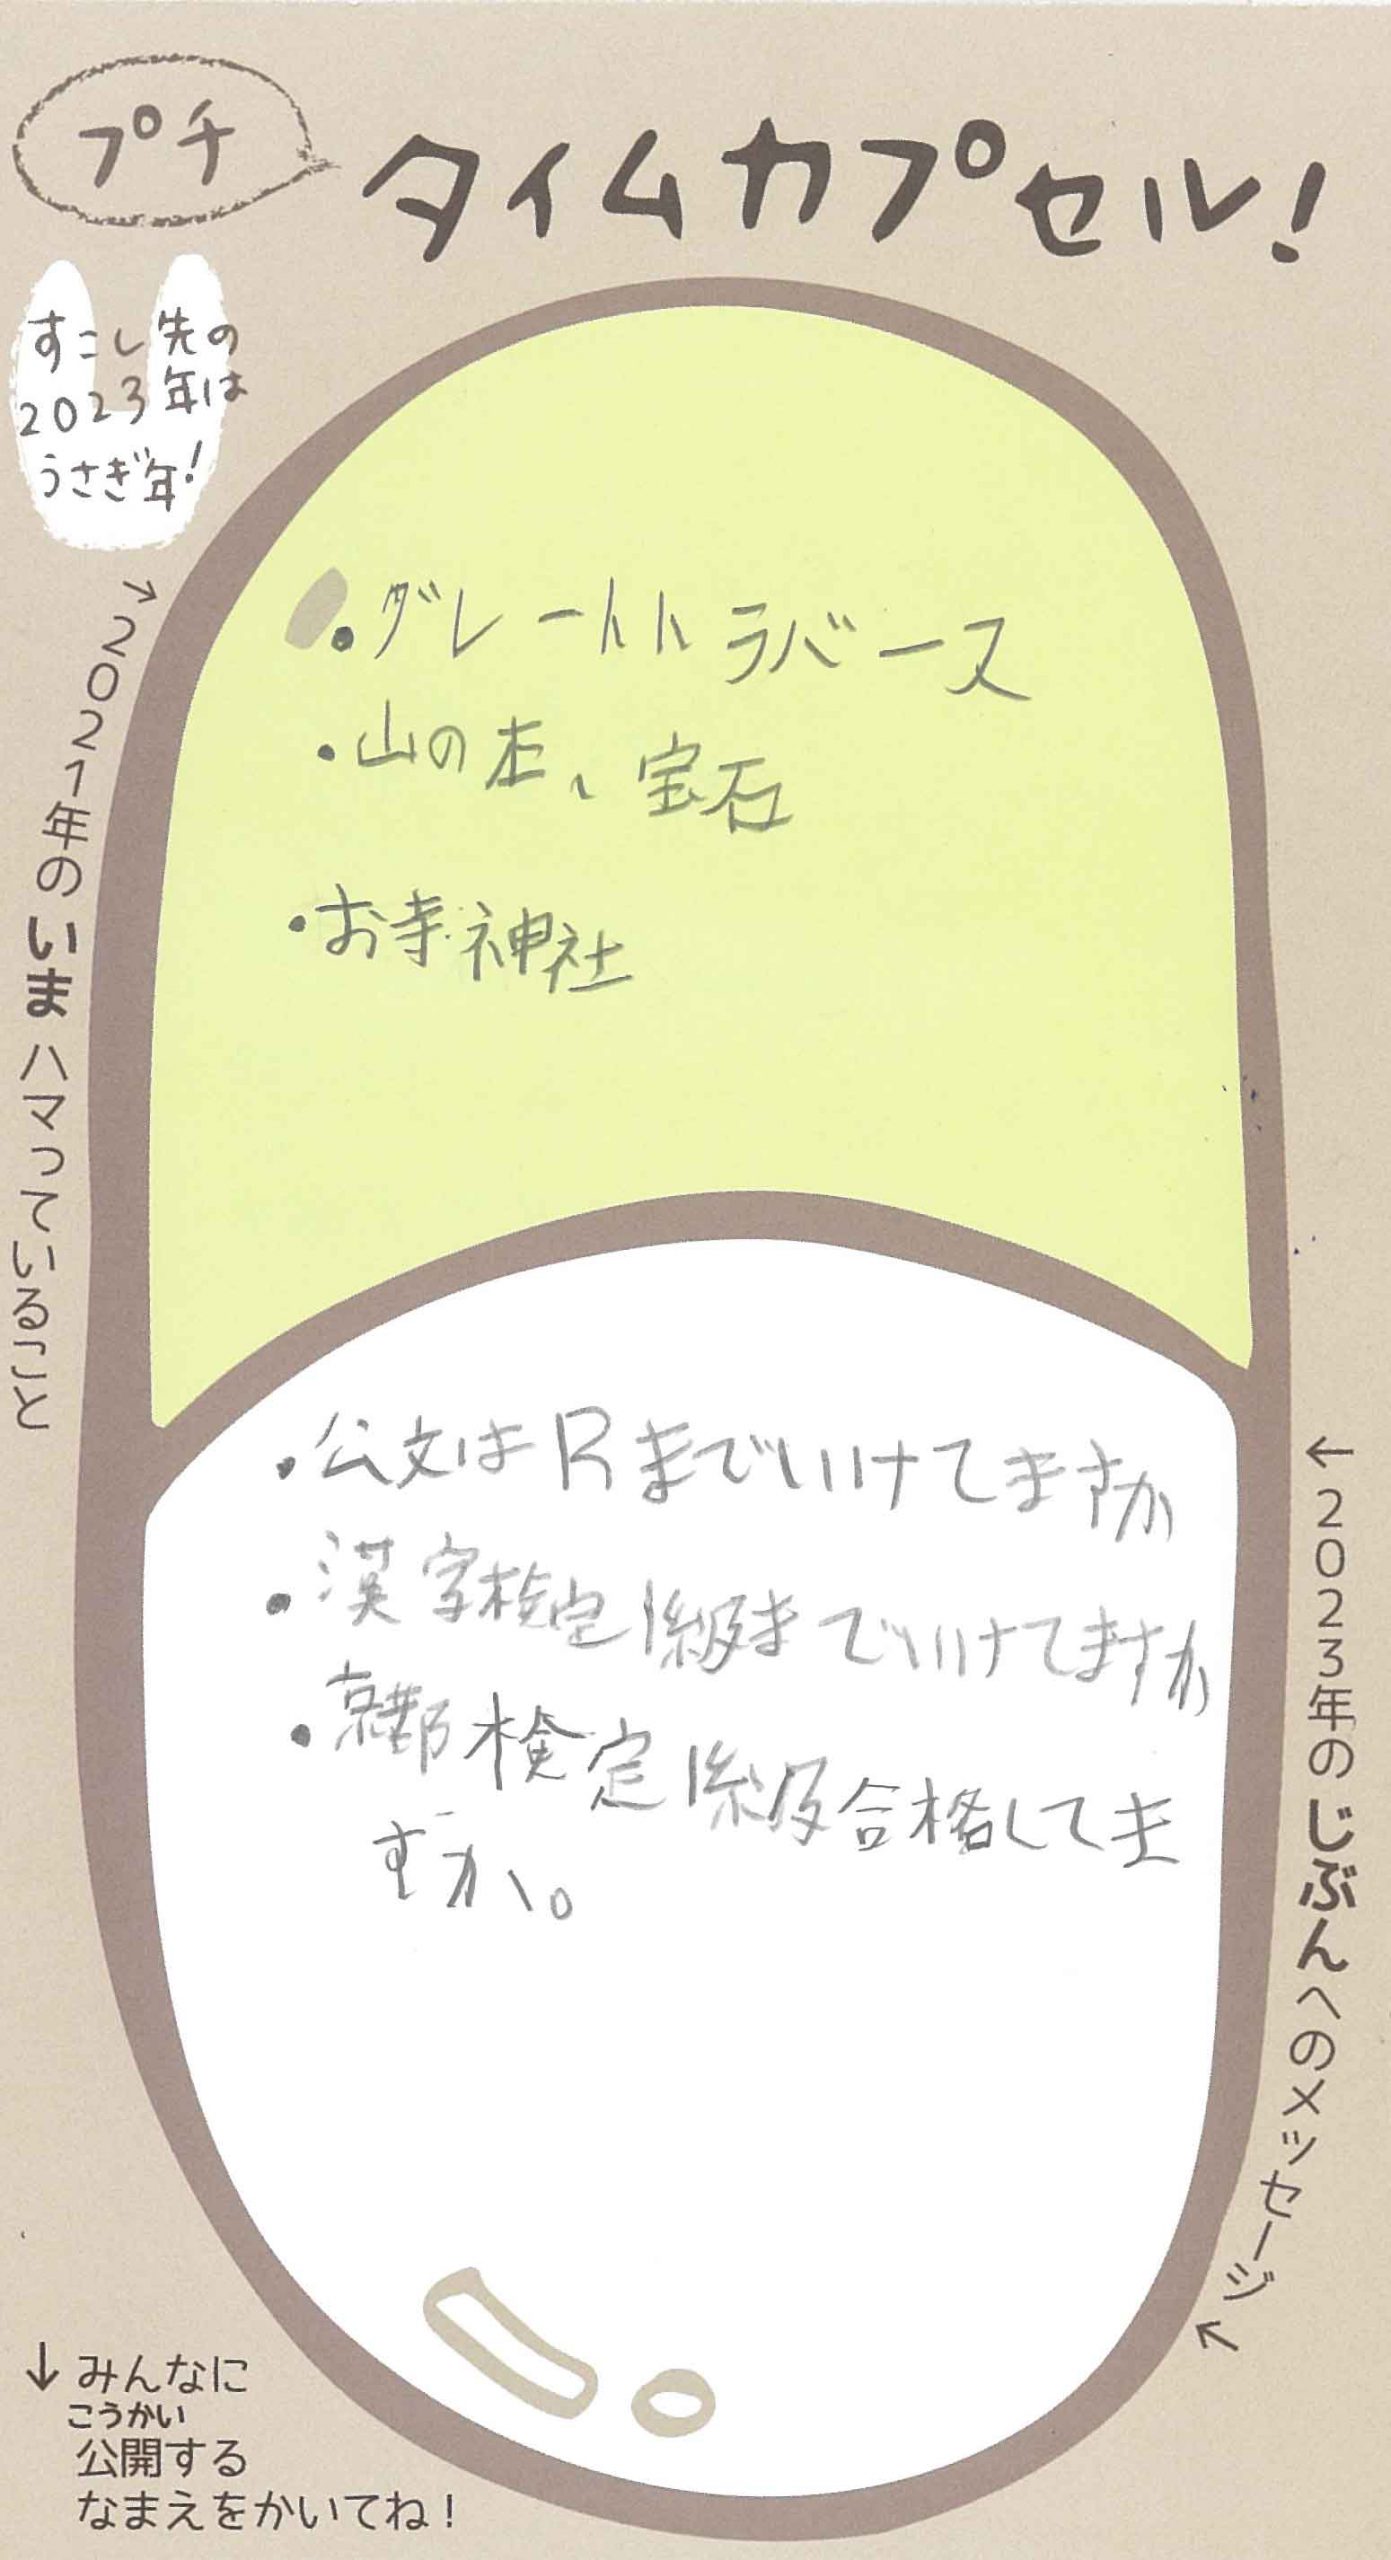 プチ
タイムカプセル！
すこし先の
2023年は
うさぎ年！
→2021年のいまハマっていること
・グレートトラバース
・山の本、宝石
・お寺神社
←2023年のじぶんへのメッセージ↖
・公文はRまでいけてますか
・漢字検定1級までいけてますか
・京都検定1級合格してま
すか。
↓みんなに
こうかい
公開する
なまえをかいてね！